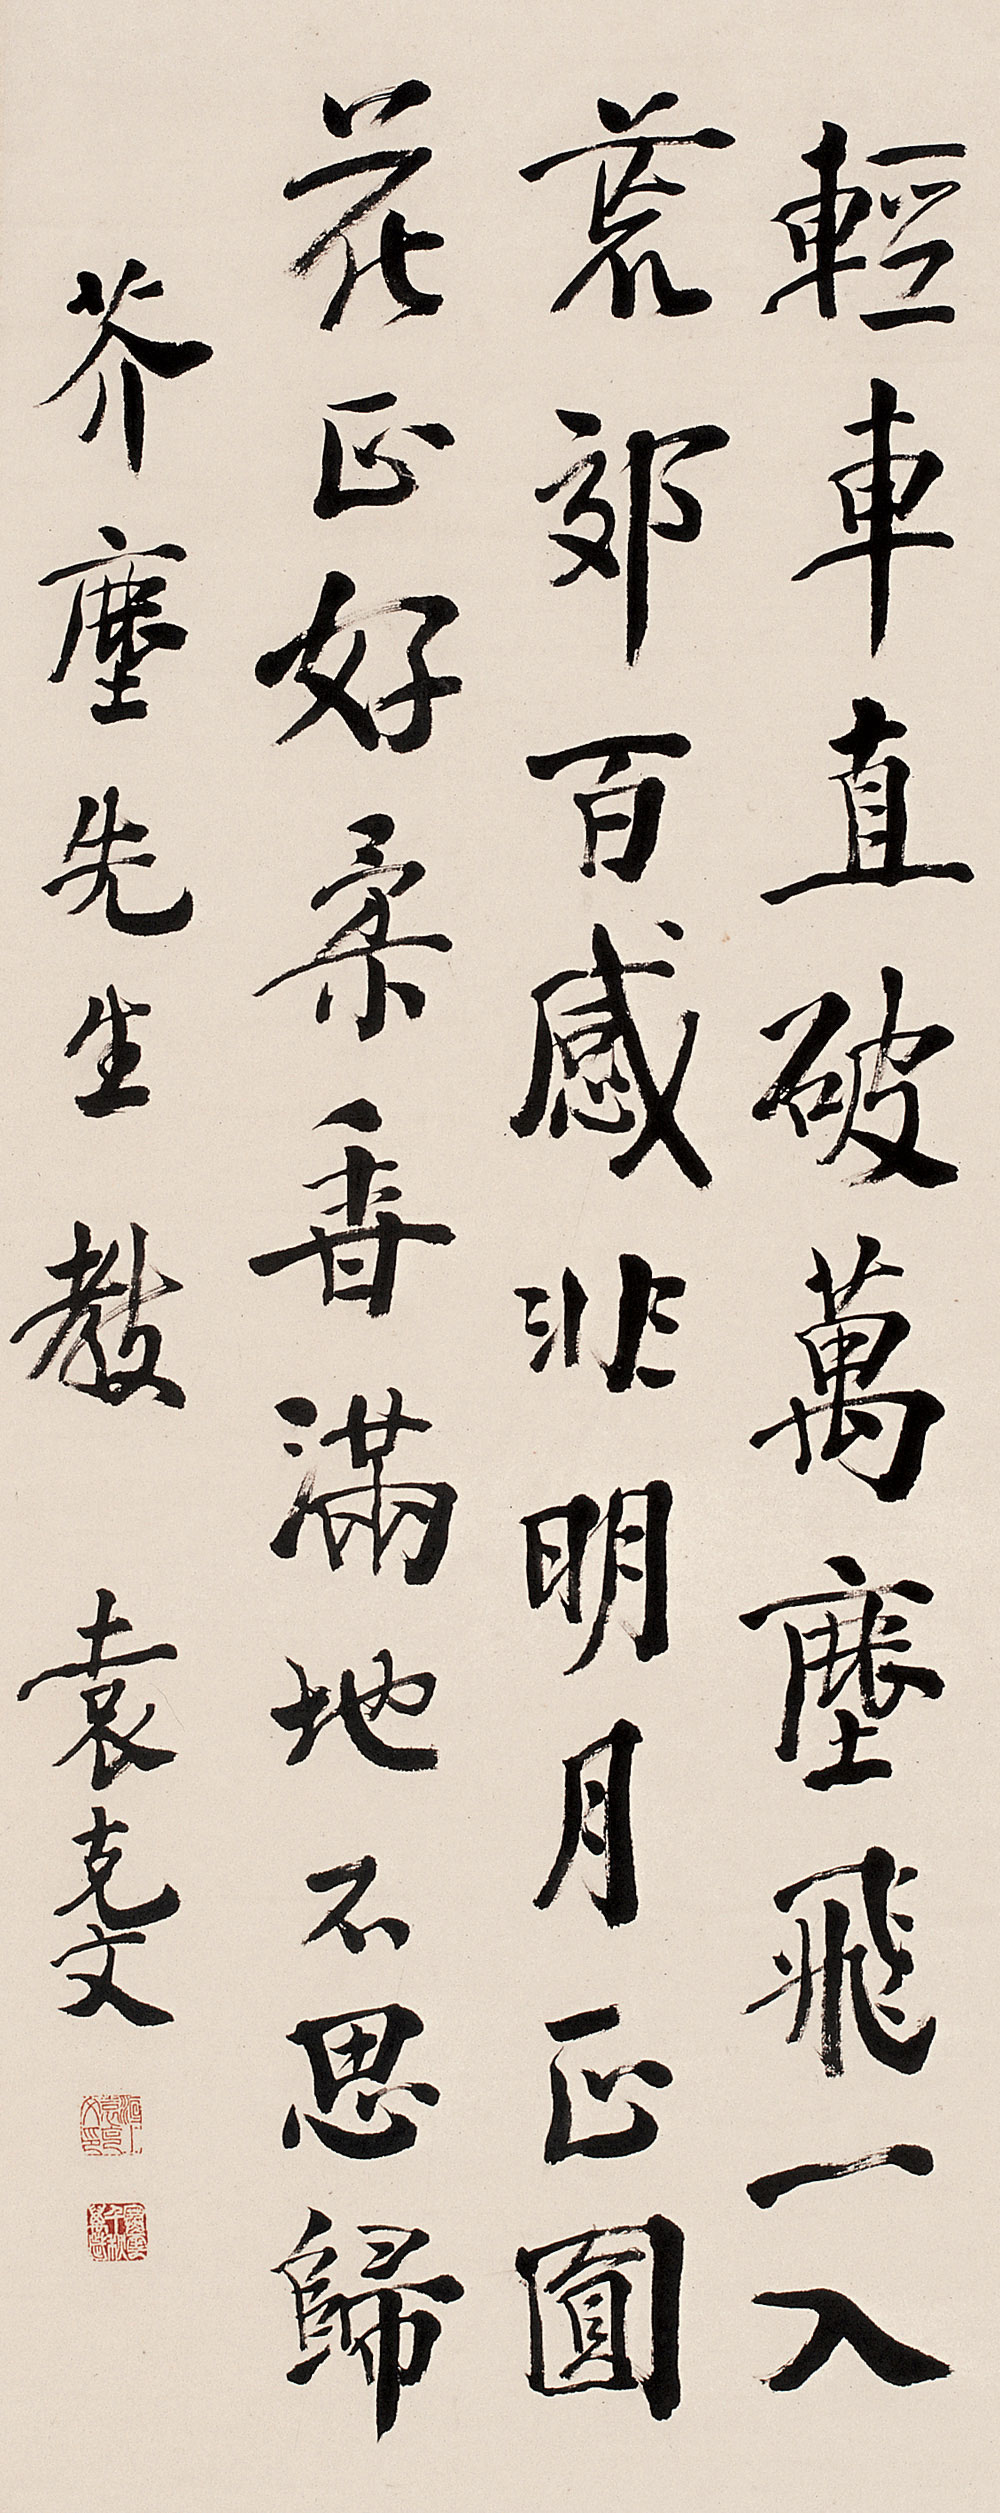 輕車直破萬塵飛一入
荒郊百感非明月正圓
花正好柔香滿地不思歸
芥塵先生教 袁克文